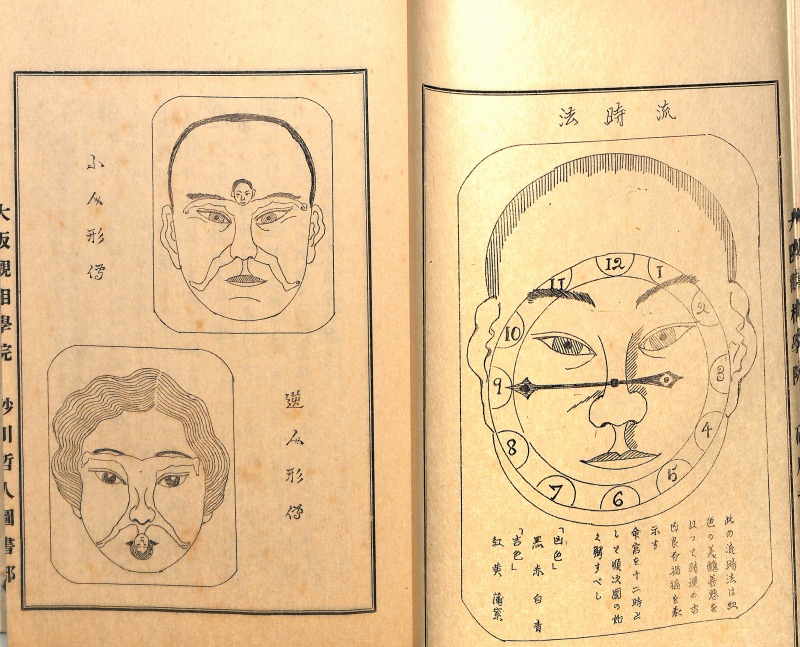 流時法
12
1
2
3
4
5
6
7
8
9
10
11
此の流時法は血
色の美醜善悪を
以つて時運の吉
凶良否禍福を表
示す
命宮を十二時と
して順次圖の如
く判すべし
「凶色」
黒 赤 白 青
「吉色」
紅 黄 薄紫
小人形
逆人形
大阪觀相學院 川哲人圖書部